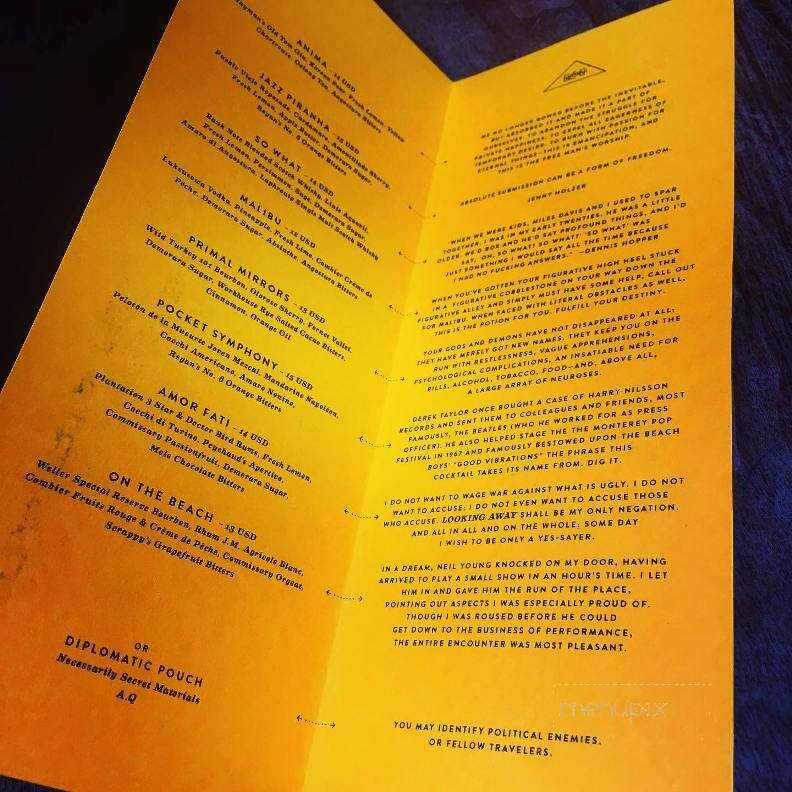 Chapman's Old Tom Gin, Fresh Lemon, Yellow
Chartreuse, Oolong Tea, Angostura Bitters
ANIMA - 14 USD
JAZZ PIRANHA - 13 USD
Pueblo Viejo Reposado, Cardamaro, Amontillado Sherry,
Fresh Lemon, Apple Butter, Demerara Sugar,
Regan's No. 6 Orange Bitters
SO WHAT - 14 USD
Bank Note Blended Scotch Whisky, Linie Aquavit,
Fresh Lemon, Persimmon, Sage, Demerara Sugar,
Amaro di Angostura, Laphroaig Single Malt Scotch Whisky
MALIBU - 14 USD
Luksusowa Vodka, Pineapple, Fresh Lime, Combier Crème de
Pêche, Demerara Sugar, Absinthe, Angostura Bitters
PRIMAL MIRRORS - 13 USD
Wild Turkey 101 Bourbon, Oloroso Sherry, Fernet Vallet,
Demerara Sugar, Workhouse Rye Salted Cacao Bitters,
Cinnamon, Orange Oil
POCKET SYMPHONY - 13 USD
Pelotón de la Muerte Joven Mezcal, Mandarine Napoleon,
Cocchi Americano, Amaro Nonino,
Regan's No. 6 Orange Bitters
AMOR FATI - 14 USD
Plantation 3 Star & Doctor Bird Rums, Fresh Lemon,
Cocchi di Torino, Peychaud's Aperitivo,
Commissary Passionfruit, Demerara Sugar,
Mole Chocolate Bitters
ON THE BEACH - 13 USD
Weller Special Reserve Bourbon, Rhum J.M. Apricole Blanc,
Combier Fruits Rouge & Crème de Pêche, Commissary Orgeat,
Scrappy's Grapefruit Bitters
OR
DIPLOMATIC POUCH
Necessarily Secret Materials
A.Q
WE NO LONGER BOWED BEFORE THE INEVITABLE,
BUT ABSORBED IT AND MADE IT A PART OF
OURSELVES. TO ABANDON THE STRUGGLE FOR
PRIVATE HAPPINESS, TO EXPEL ALL EAGERNESS OF
TEMPORARY DESIRE, TO BURN WITH PASSION FOR
ETERNAL THINGS - THIS IS EMANCIPATION, AND
THIS IS THE FREE MAN'S WORSHIP.
ABSOLUTE SUBMISSION CAN BE A FORM OF FREEDOM-
JENNY HOLZER
WHEN WE WERE KIDS, MILES DAVIS AND I USED TO SPAR
TOGETHER. I WAS IN MY EARLY TWENTIES. HE WAS A LITTLE
OLDER. WE'D BOX AND HE'D SAY PROFOUND THINGS, AND I'D
SAY, 'OH, SO WHAT! SO WHAT!' 'SO WHAT' WAS
JUST SOMETHING I WOULD SAY ALL THE TIME BECAUSE
I HAD NO FUCKING ANSWERS." —DENNIS HOPPER
WHEN YOU'VE GOTTEN YOUR FIGURATIVE HIGH HEEL STUCK
IN A FIGURATIVE COBBLESTONE ON YOUR WAY DOWN THE
FIGURATIVE ALLEY AND SIMPLY MUST HAVE SOME HELP, CALL OUT
FOR MALIBU. WHEN FACED WITH LITERAL OBSTACLES AS WELL,
THIS IS THE POTION FOR YOU. FULFILL YOUR DESTINY.
YOUR GODS AND DEMONS HAVE NOT DISAPPEARED AT ALL;
THEY HAVE MERELY GOT NEW NAMES. THEY KEEP YOU ON THE
RUN WITH RESTLESSNESS, VAGUE APPREHENSIONS,
PSYCHOLOGICAL COMPLICATIONS, AN INSATIABLE NEED FOR
PILLS, ALCOHOL, TOBACCO, FOOD—AND, ABOVE ALL,
A LARGE ARRAY OF NEUROSES.
DEREK TAYLOR ONCE BOUGHT A CASE OF HARRY NILSSON
RECORDS AND SENT THEM TO COLLEAGUES AND FRIENDS, MOST
FAMOUSLY, THE BEATLES (WHO HE WORKED FOR AS PRESS
OFFICER). HE ALSO HELPED STAGE THE THE MONTEREY POP
FESTIVAL IN 1967 AND FAMOUSLY BESTOWED UPON THE BEACH
BOYS' "GOOD VIBRATIONS" THE PHRASE THIS
COCKTAIL TAKES ITS NAME FROM. DIG IT.
I DO NOT WANT TO WAGE WAR AGAINST WHAT IS UGLY. I DO NOT
WANT TO ACCUSE; I DO NOT EVEN WANT TO ACCUSE THOSE
WHO ACCUSE. LOOKING AWAY SHALL BE MY ONLY NEGATION.
AND ALL IN ALL AND ON THE WHOLE: SOME DAY
I WISH TO BE ONLY A YES-SAYER.
IN A DREAM, NEIL YOUNG KNOCKED ON MY DOOR, HAVING
ARRIVED TO PLAY A SMALL SHOW IN AN HOUR'S TIME. I LET
HIM IN AND GAVE HIM THE RUN OF THE PLACE,
POINTING OUT ASPECTS I WAS ESPECIALLY PROUD OF.
THOUGH I WAS ROUSED BEFORE HE COULD
GET DOWN TO THE BUSINESS OF PERFORMANCE,
THE ENTIRE ENCOUNTER WAS MOST PLEASANT.
YOU MAY IDENTIFY POLITICAL ENEMIES,
OR FELLOW TRAVELERS.
menupix